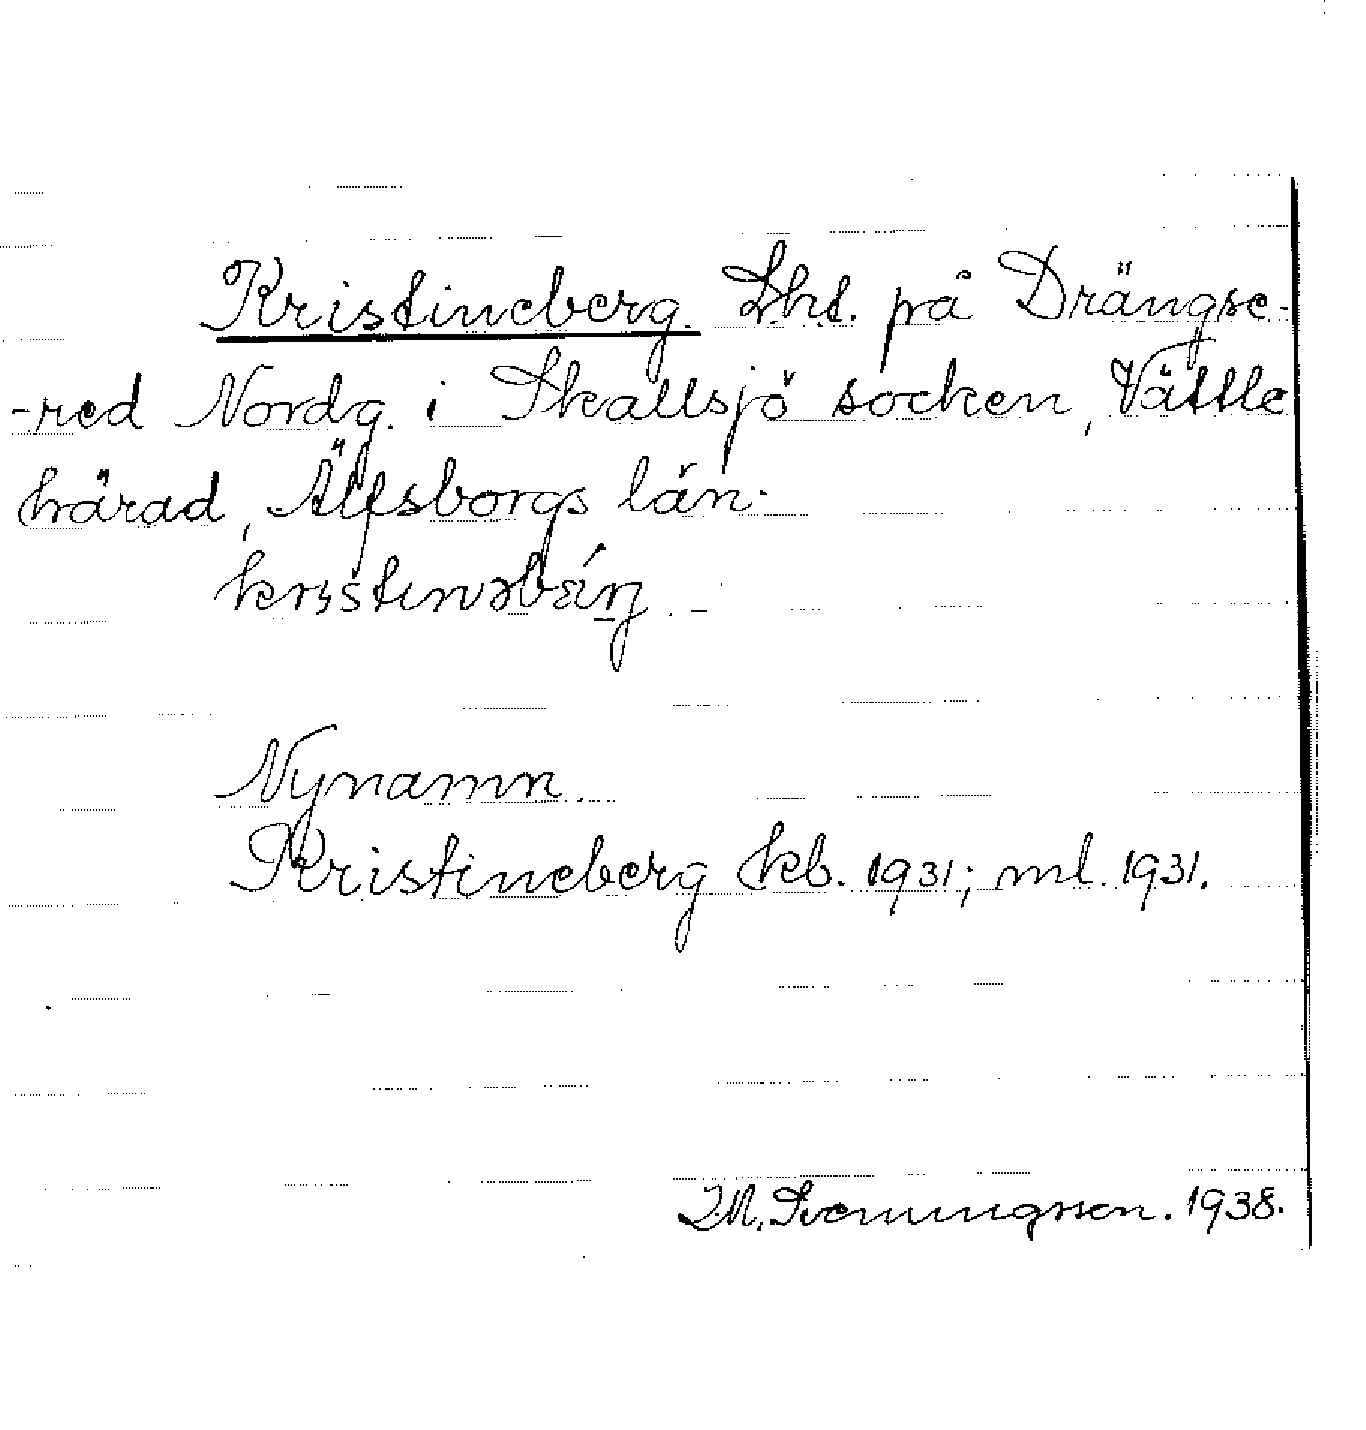 Kristineberg. Lht. på Drängse-
-red Nordg. i Skallsjö socken, Vättle
härad, Älfsborgs län.
Nynamn.
Kristineberg kb. 1931; ml. 1931.
Svenningsson. 1938.